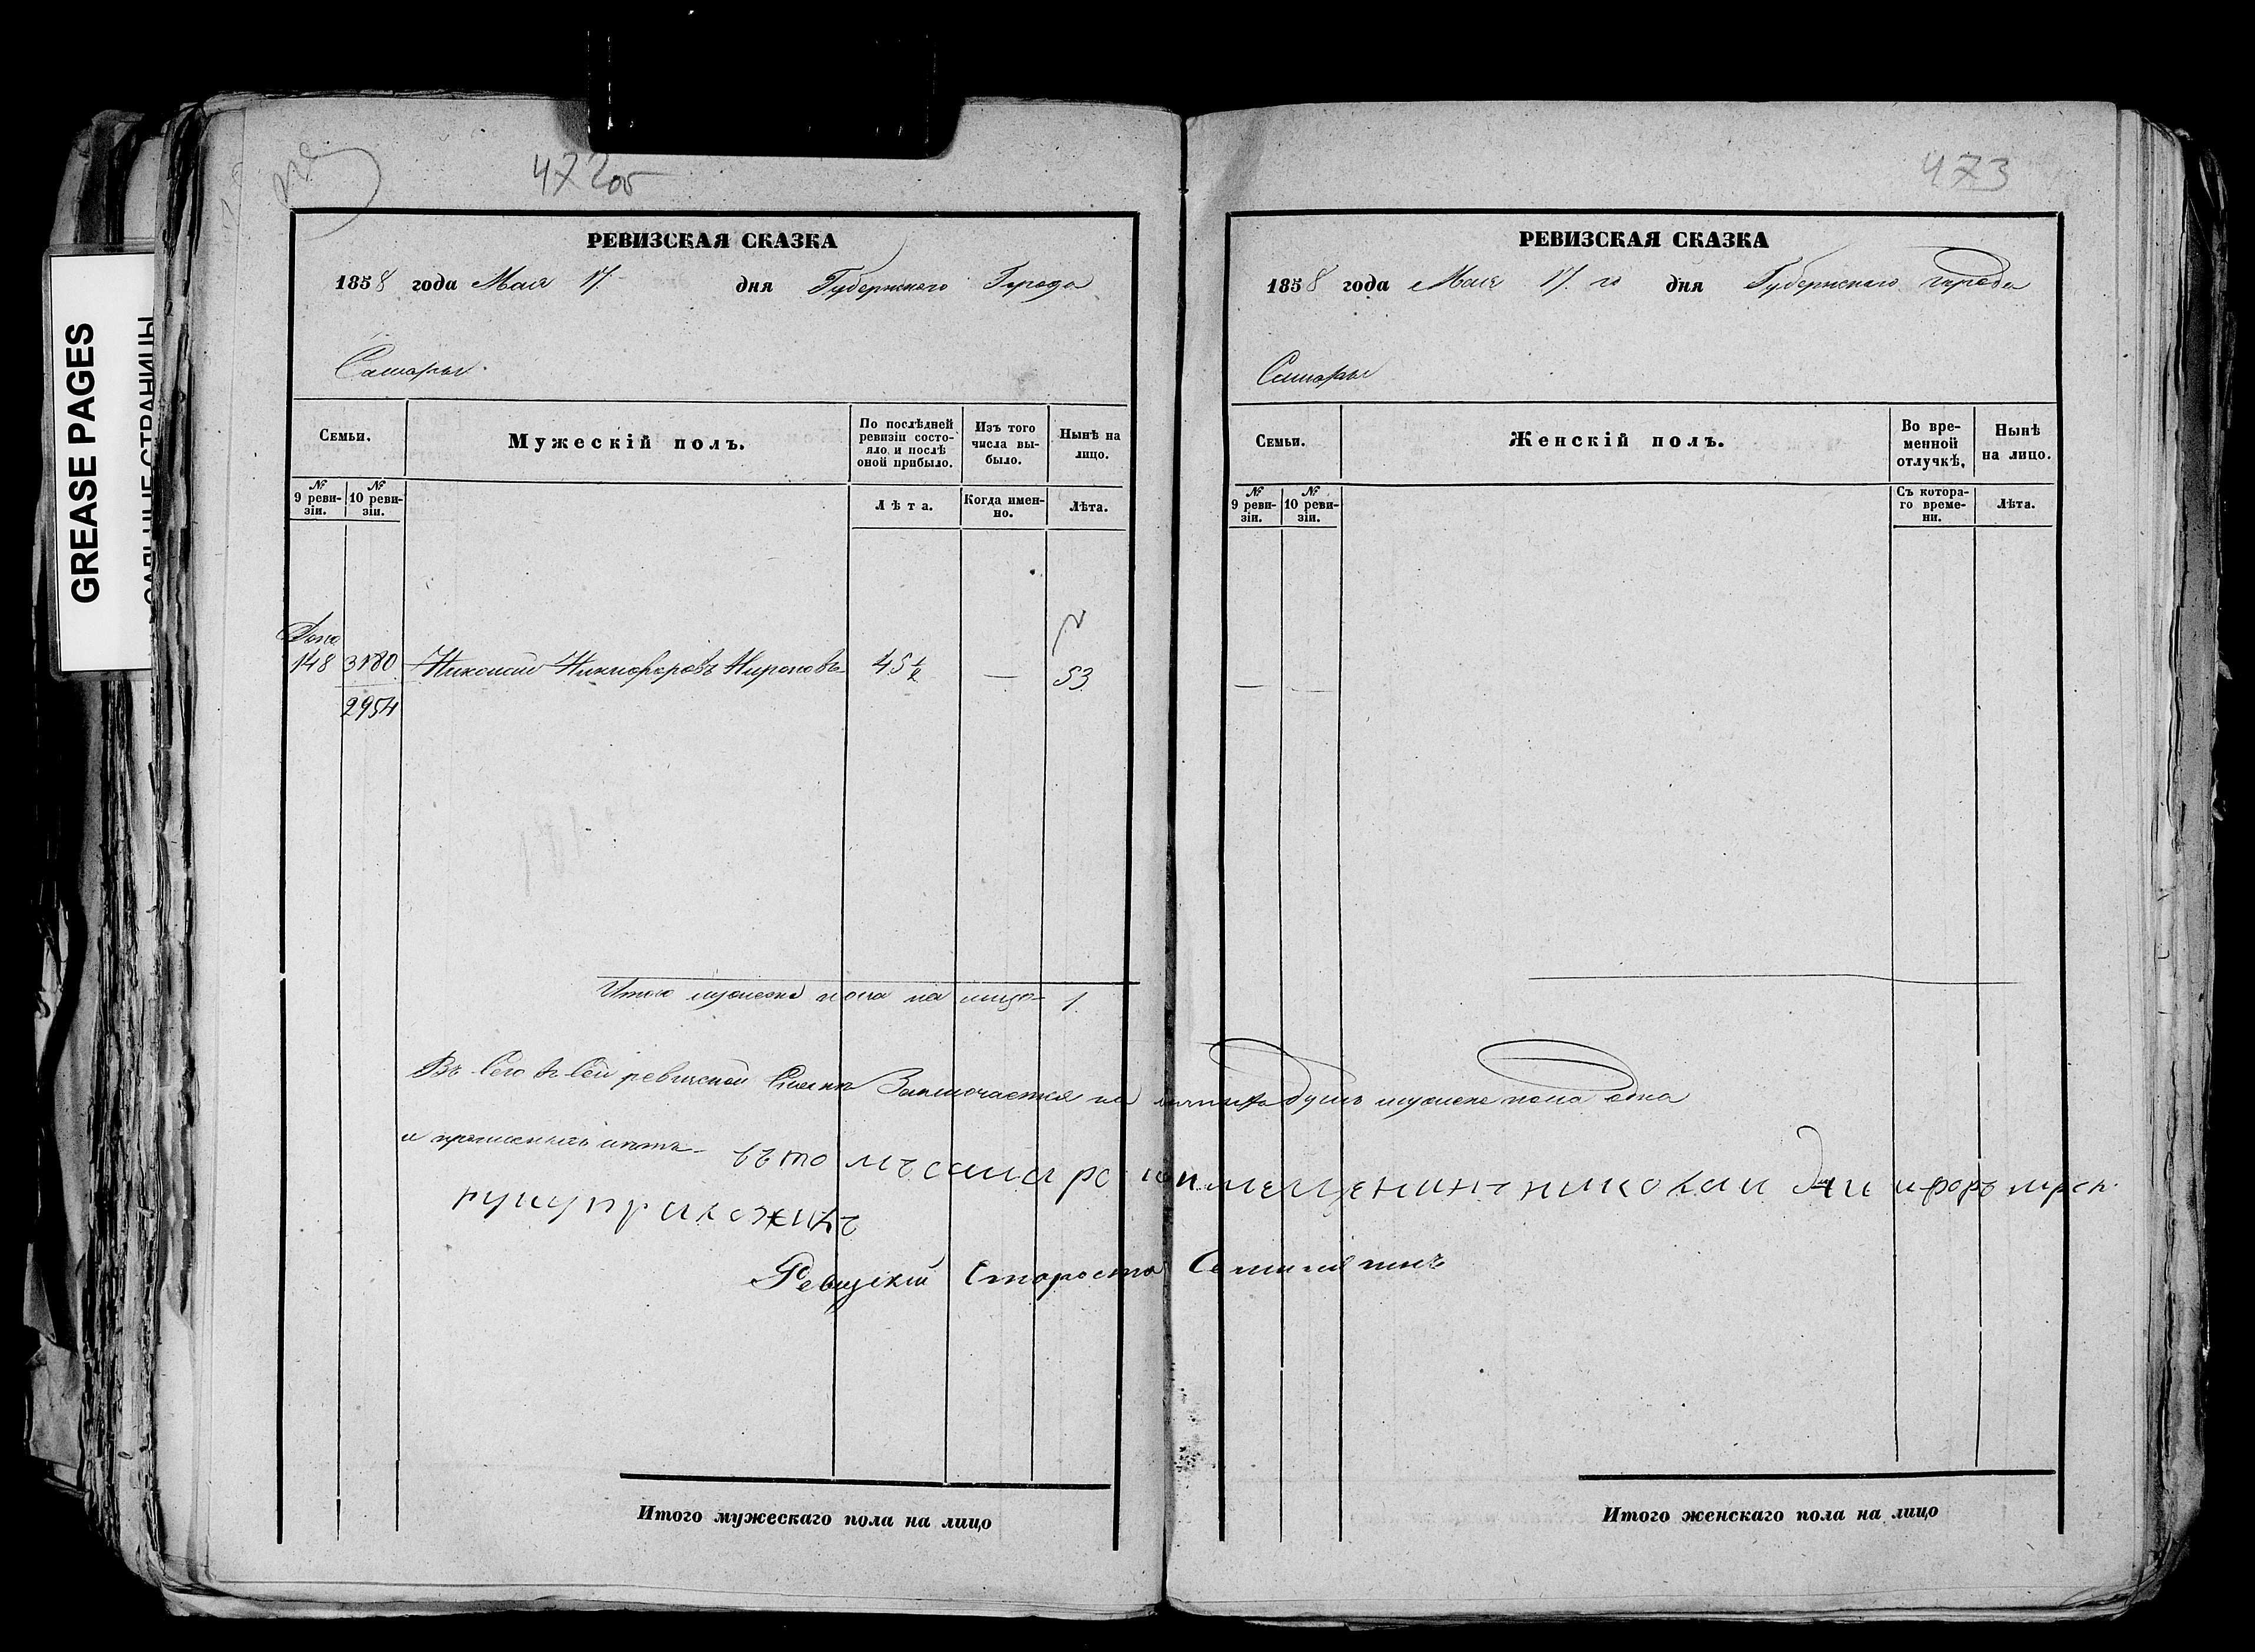 GREASE PAGES
472об
РЕВИЗСКАЯ СКАЗКА
1858 года Мая 17 дня Губернскаго Города
Самары
Семьи.
Мужескій полъ.
По послѣдней ревизіи состояло и послѣ оной прибыло.
Изъ того числа выбыло.
Нынѣ на лицо.
№ 9 ревизіи.
№ 10 ревизіи.
Лѣта.
Когда именно.
Лѣта.
Допо
148 3180 Николай Никифоровъ Мироновъ 45½ — 53
2954
Итого мужеска пола на лицо 1
Въ Сей ревизской Сказкѣ Заключается на душъ мужска пола одна
и прописныхъ нѣтъ
въ томъ мещенинъ николаи
руку приложилъ
Ревизскій Староста
Итого мужескаго пола на лицо
473
РЕВИЗСКАЯ СКАЗКА
1858 года Мая 17 го дня Губернскаго города
Самары
Семьи.
Женскій полъ.
Во временной отлучкѣ.
Нынѣ на лицо.
№ 9 ревизіи.
№ 10 ревизіи.
Съ котораго времени.
Лѣта.
— —
Итого женскаго пола на лицо